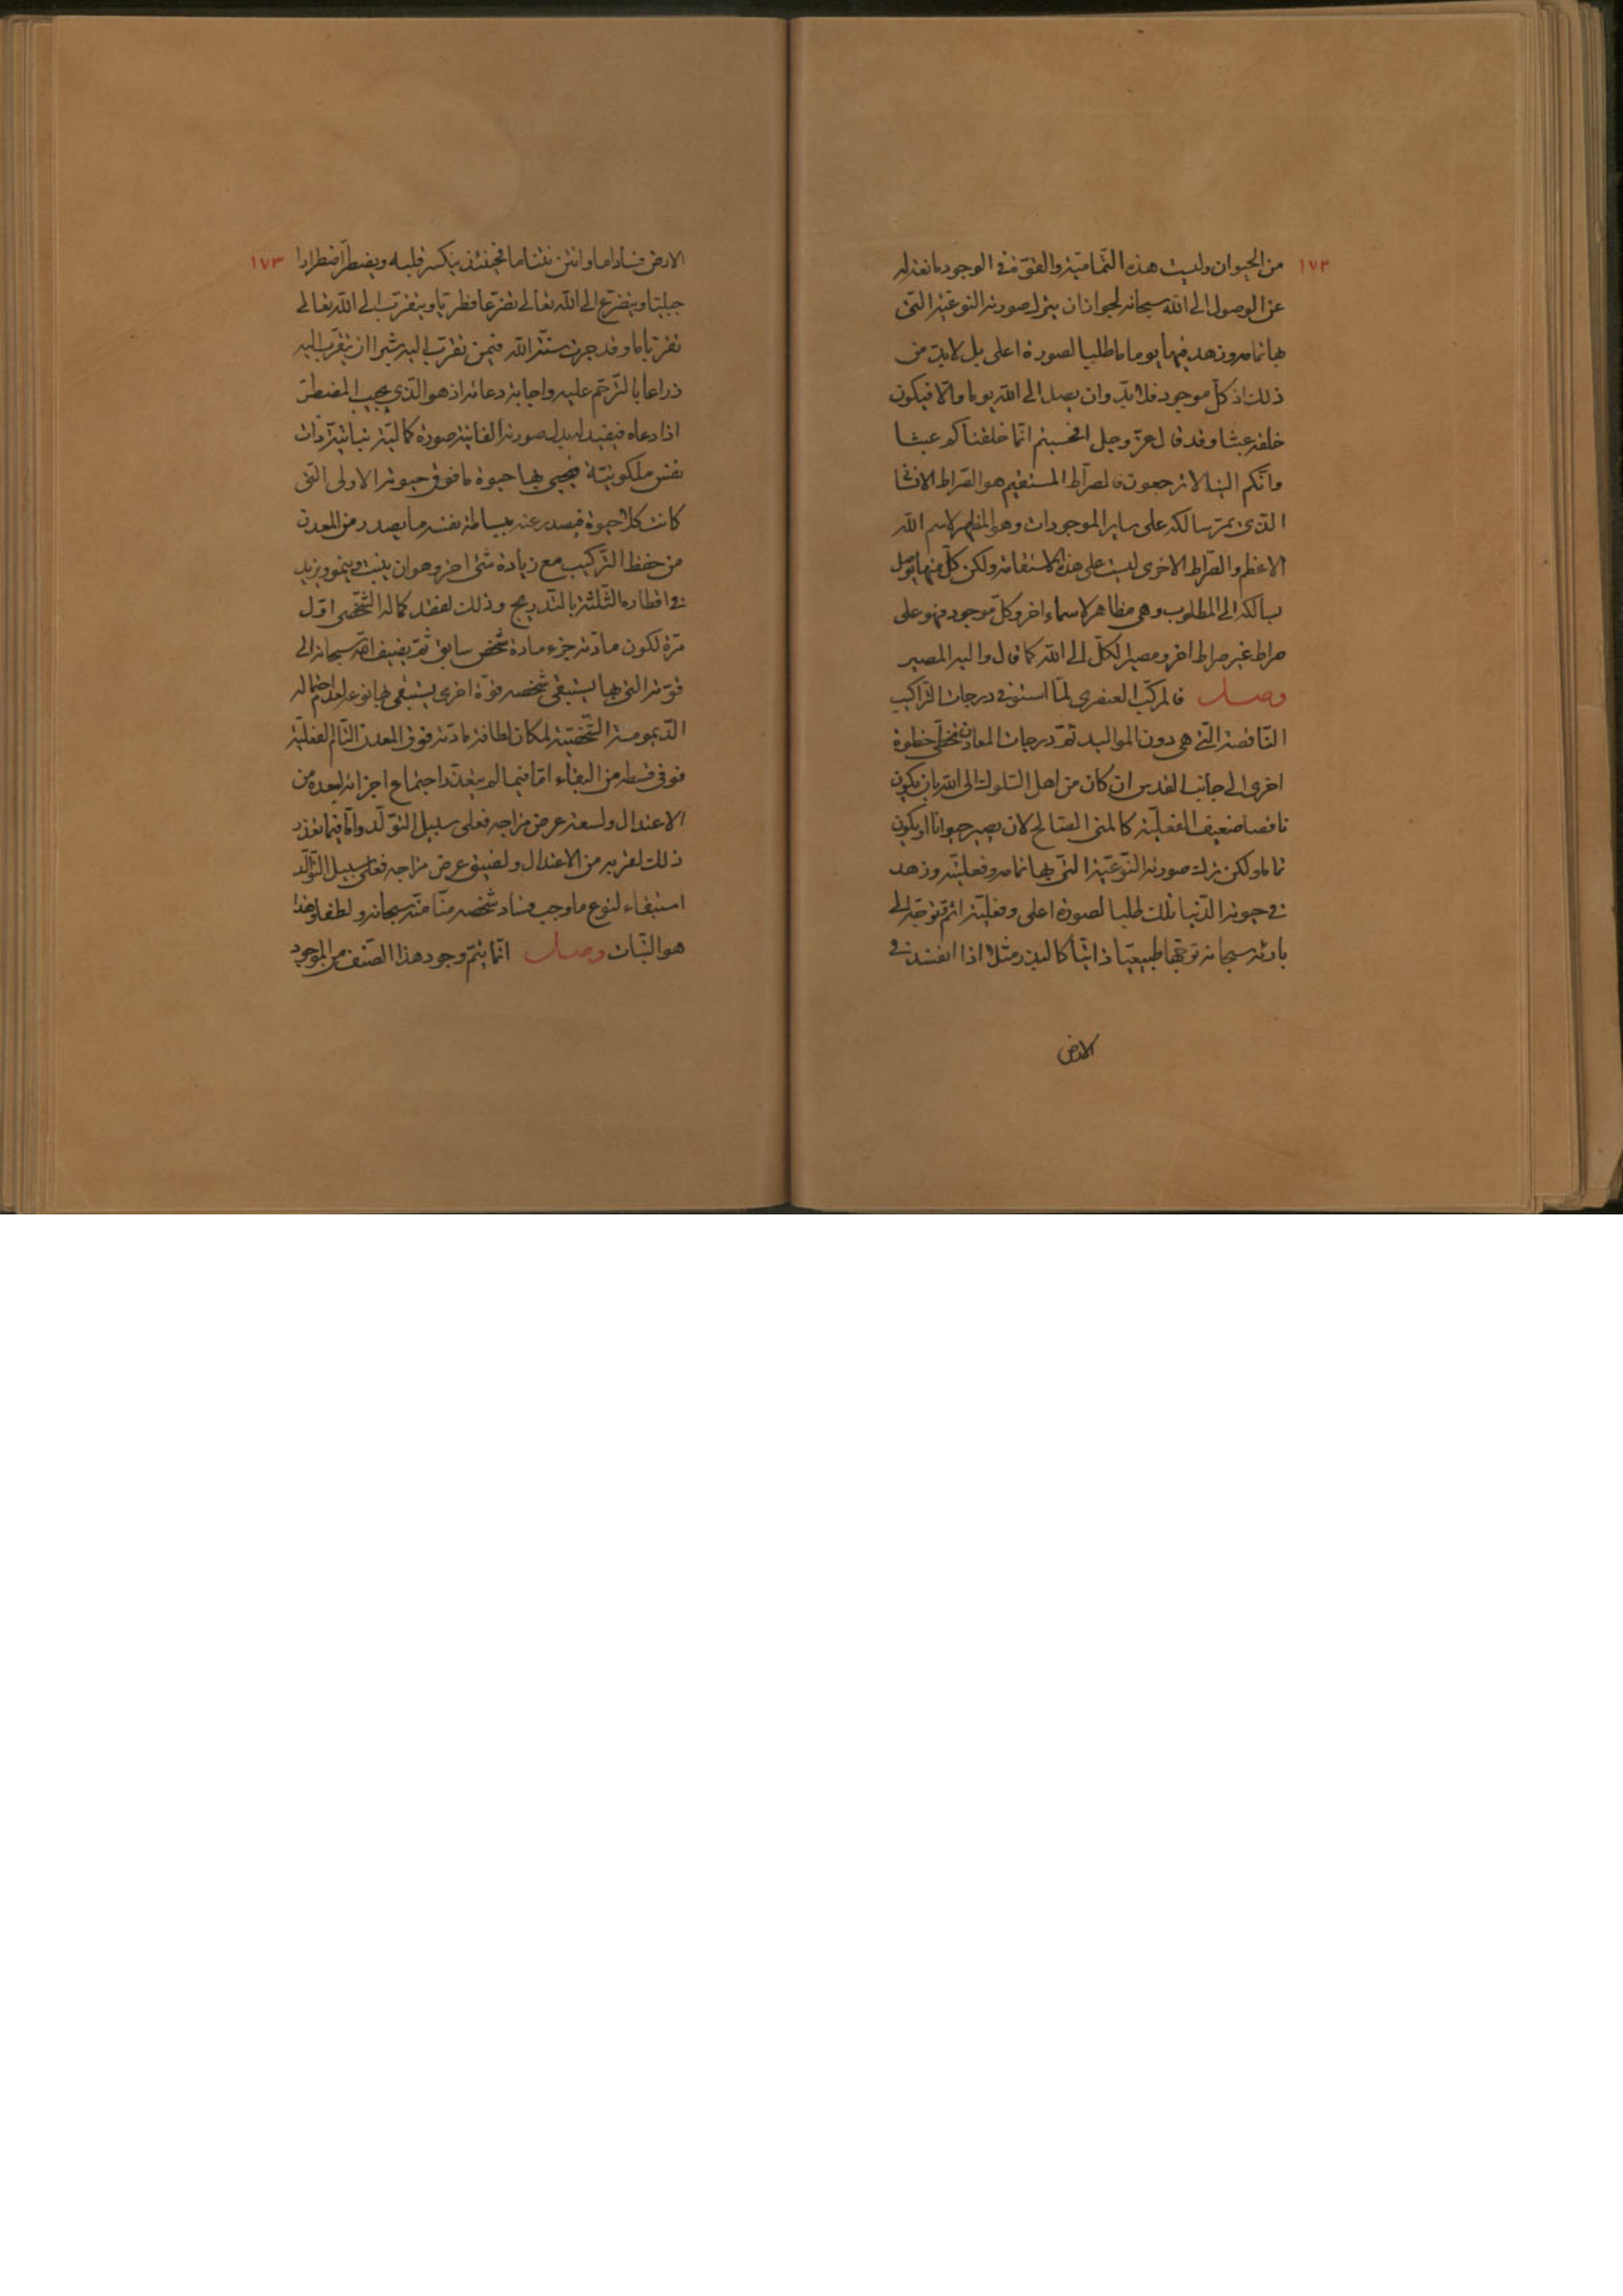 ١٧٢
من الحيوان وليست هذه التّماميّة والقوّة في الوجود مانعة له
عن الوصول الى الله سبحانه لجواز ان يترك صورته النوعيّة التي
بها تمامه وزهد فيها يوما ما طلبا لصورة اعلى بل لابدّ من
ذلك اذ كلّ موجود فلابدّ وان يصل الى الله يوما والّا فيكون
خلقه عبثا وقد قال عزّ وجل افحسبتم انّما خلقناكم عبثا
وانّكم الينا لا ترجعون فالصراط المستقيم هو الصّراط الانسانى
الذى يمرّ سالكه على ساير الموجودات وهو المظهر لاسم الله
الاعظم والصّراط الاخرى ليست على هذه الاستقامة ولكن كلّ منها يوصل
سالكه الى المطلوب وهي مظاهر لاسماء اخر وكلّ موجود فهو على
صراط غير صراط اخر ومصير الكلّ الى الله كما قال واليه المصير
وصل فالمركّب العنصري لمّا استوفى درجات التراكيب
النّاقصة التي هي دون المواليد ثمّ درجات المعادن تخطّى خطوة
اخرى الى جانب القدس ان كان من اهل السّلوك الى الله بان يكون
ناقصا ضعيف الفعليّة كالمنى الصّالح لان يصير حيوانا او يكون
تاما ولكن ترك صورته النّوعيّة التّي بها تمامه وفعليّته وزهد
في حيوته الدّنيا تلك طلبا لصورة اعلى وفعليّة اتمّ توجّه الى
بارئه سبحانه توجّها طبيعيّا ذاتيّا كالبذر مثلا اذا افسد في
الارض
١٧٣
الارض فسادا ما وانتن نتنا ما فحينئذ ينكسر قلبه ويضطرّ اضطرارا
جبليّا ويتضرّع الى الله تعالى تضرّعا فطريّا ويتقرّب الى الله تعالى
تقرّبا ما وقد جرت سنّة الله فيمن تقرّب اليه شبرا ان يتقرّب اليه
ذراعا بالترحّم عليه واجابة دعائه اذ هو الّذي يجيب المضطرّ
اذا دعاه فيفيد له بدل صورته الفانية صورة كماليّة نباتيّة ذات
نفس ملكوتيّة فيحيى بها حيوة ما فوق حيوته الاولى التّي
كانت كلا حيوة فيصدر عنه بساطة نفسه ما يصدر من المعدن
من حفظ التّركيب مع زيادة شئ اخر وهو ان ينبت وينمو ويزيد
في اقطاره الثلثة بالتّدريج وذلك لفقد كماله الشّخصى اوّل
مرّة لكون مادّته جزء مادة شخص سابق ثمّ يضيف الله سبحانه الى
قوّته التي بها يستبقى شخصه قوّة اخرى يستبقى بها نوعه لعدم احتماله
الدّيمومة الشّخصيّة لمكان لطافة مادّته فوق المعدن التّام الفعليّة
فوفى قسطه من البقاء امّا فيما لم يتعذّر اجتماع اجزائه لبعده من
الاعتدال ولسعة عرض مزاجه فعلى سبيل التّولّد وامّا فيما تعذّر
ذلك لقربه من الاعتدال ولضيق عرض مزاجه فعلى سبيل التّوالد
استبقاء لنوع ما وجب فساد شخصه منّا منه سبحانه ولطفا وهذا
هو النّبات وصل انّما يتمّ وجود هذا الصّنف من الموجود